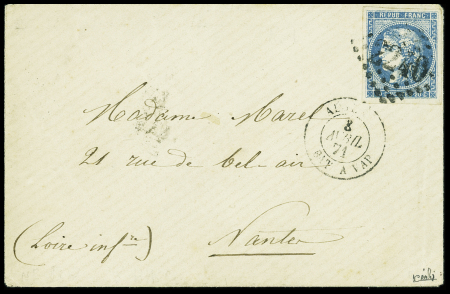 REPUB FRANC
Madame Marel
8
AVRIL
71
21 rue de bel-air
(Loire infre)
Nantes